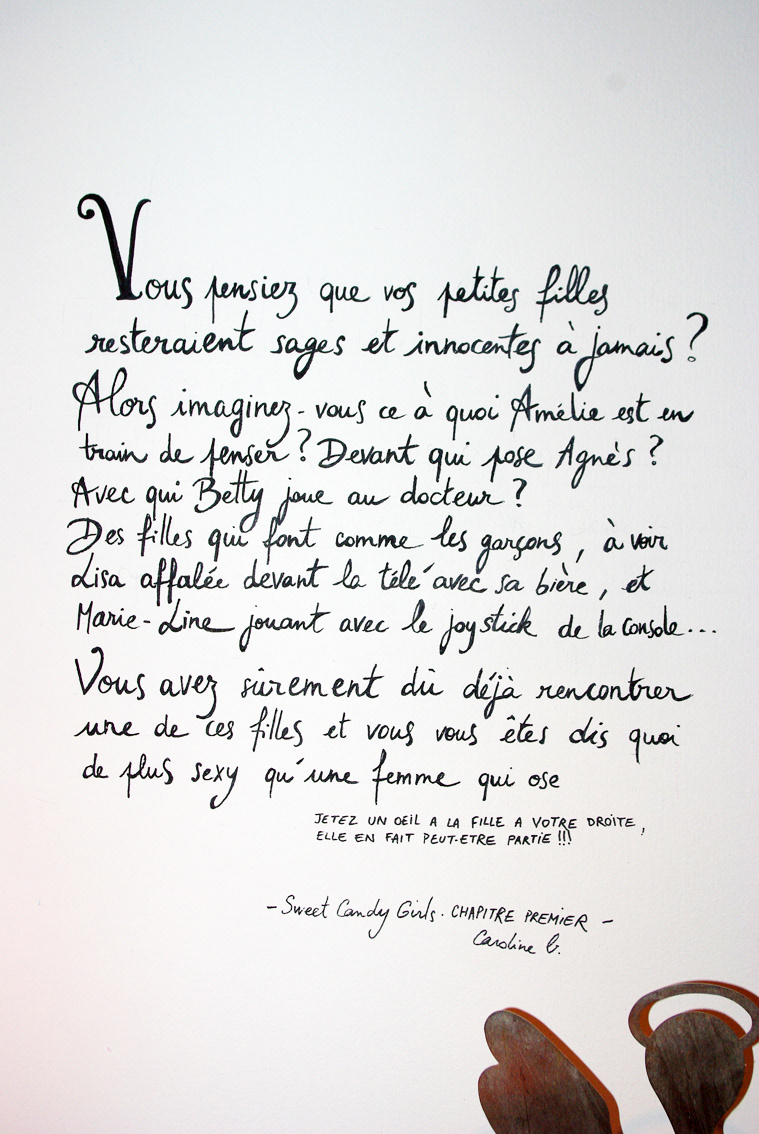 Vous pensiez que vos petites filles
resteraient sages et innocentes à jamais ?
Alors imaginez-vous ce à quoi Amélie est en
train de penser ? Devant qui pose Agnès ?
Avec qui Betty joue au docteur ?
Des filles qui font comme les garçons, à voir
Lisa affalée devant la télé avec sa bière, et
Marie-Line jouant avec le joystick de la console...
Vous avez sûrement dû déjà rencontrer
une de ces filles et vous vous êtes dis quoi
de plus sexy qu'une femme qui ose
JETEZ UN OEIL A LA FILLE A VOTRE DROITE,
ELLE EN FAIT PEUT-ETRE PARTIE !!!
- Sweet Candy Girls. CHAPITRE PREMIER -
Caroline b.